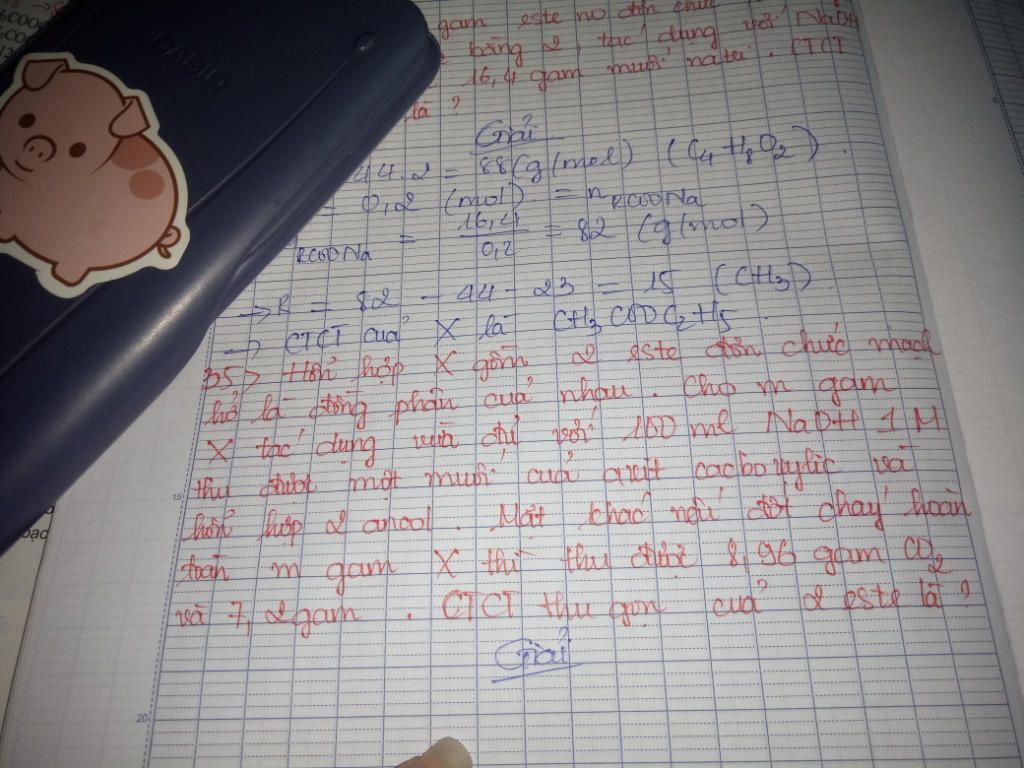 CASIO
gam este no đơn chức
bằng 2, tác dụng với NaOH
16,4 gam muối natri. CTCT
là?
Giải
44.2 = 88 (g/mol) (C4H8O2).
= 0,2 (mol). = nRCOONa
RCOONa = 16,4/0,2 = 82 (g/mol)
→ R = 82 - 44 - 23 = 15 (CH3).
→ CTCT của X là CH3COOC2H5.
b5> Hỗn hợp X gồm 2 este đơn chức mạch
hở là đồng phân của nhau. Cho m gam
X tác dụng vừa đủ với 100 ml NaOH 1M
thu được một muối của axit cacboxylic và
hỗn hợp 2 ancol. Mặt khác nếu đốt cháy hoàn
toàn m gam X thì thu được 8,96 gam CO2
và 7,2 gam. CTCT thu gọn của 2 este là?
Giải
15
20